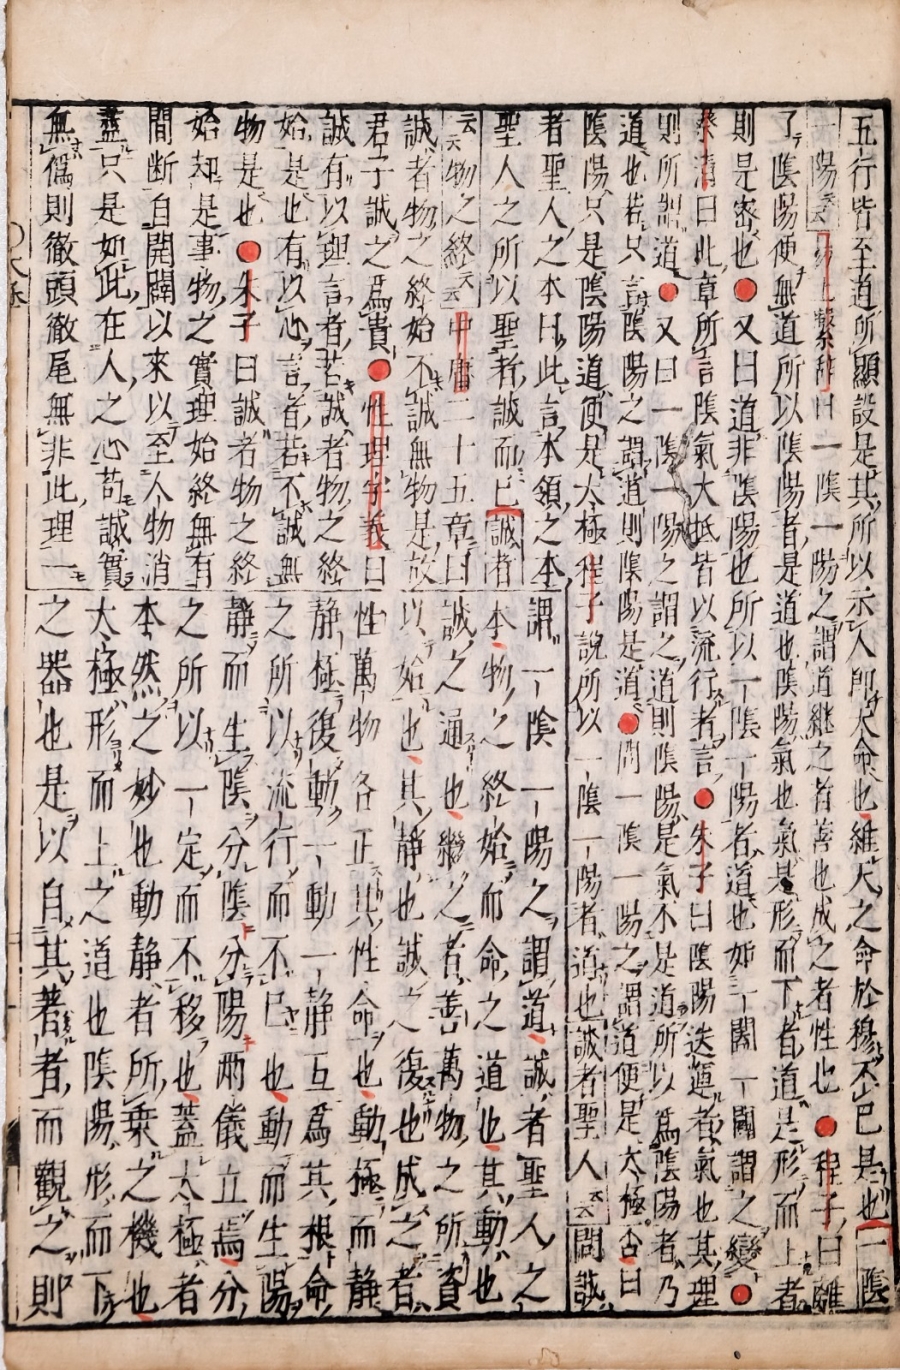 五行皆至道所顯設是其所以示人即天命也維天之命於穆不已是也一陰
一陽云云 上繫辭曰一陰一陽之謂道継之者善也成之者性也●程子曰離
了陰陽便無道所以陰陽者是道也陰陽氣也氣是形而下者道是形而上者
則是密也●又曰道非陰陽也所以一陰一陽者道也如一闔一闢謂之變●
蔡清曰此章所言陰氣大抵皆以流行者言●朱子曰陰陽迭運者氣也其理
則所謂道●又曰一陰一陽之謂之道則陰陽是氣不是道所以爲陰陽者乃
道也若只言陰陽之謂道則陰陽是道●問一陰一陽之謂道便是太極否曰
陰陽只是陰陽道便是太極程子說所以一陰一陽者道也誠者聖人云云問誠
者聖人之本曰此言本領之本
聖人之所以聖者誠而已誠者
云云物之終云云中庸二十五章曰
誠者物之終始不誠無物是故
君子誠之爲貴●性理字義曰
誠有以理言者若誠者物之終
始是也有以心言者若不誠無
物是也●朱子曰誠者物之終
始却是事物之實理始終無有
間断自開闢以來以至人物消
盡只是如此在人之心苟誠實
無僞則徹頭徹尾無非此理一
謂一陰一陽之謂道誠者聖人之
本物之終始而命之道也其動也
誠之通也繼之者善萬物之所資
以始也其靜也誠之復也成之者
性萬物各正其性命也動極而靜
靜極復動一動一靜互爲其根命
之所以流行而不已也動而生陽
靜而生陰分陰分陽兩儀立焉分
之所以一定而不移也蓋太極者
本然之妙也動靜者所乗之機也
太極形而上之道也陰陽形而下
之器也是以自其著者而觀之則